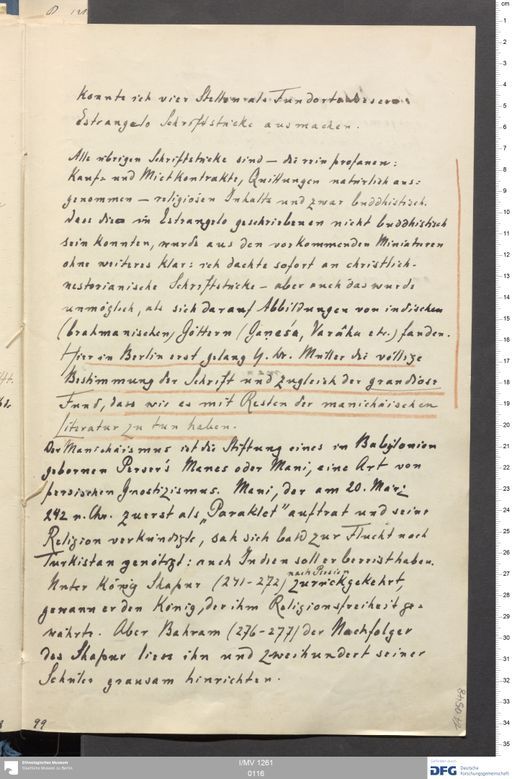 konnte ich vier Stellen als Fundorte dieser
Estrangelo Schriftstücke ausmachen.
Alle übrigen Schriftstücke sind – die rein profanen:
Kauf- und Mietkontrakte, Quittungen natürlich aus:
genommen – religiösen Inhalts und zwar buddhistisch.
Dass die in Estrangelo geschriebenen nicht buddhistisch
sein konnten, wurde aus den vorkommenden Miniaturen
ohne weiteres klar: ich dachte sofort an christlich-
nestorianische Schriftstücke – aber auch das wurde
unmöglich, als sich darauf Abbildungen von indischen
(brahmanischen) Göttern (Ganesa, Varâha etc.) fanden.
Hier in Berlin erst gelang Dr. Müller die völlige
Bestimmung der Schrift und zugleich der grandiose
Fund, dass wir es mit Resten der manichäischen
Literatur zu tun haben.
Der Manichäismus ist die Stiftung eines in Babylonien
gebornen Perser's Manes oder Mani, eine Art von
persischen Gnostizismus. Mani, der am 20. März
242 n. Chr. zuerst als „Paraklet" auftrat und seine
Religion verkündigte, sah sich bald zur Flucht nach
Turkistan genötigt: auch Indien soll er bereist haben.
Unter König Shapur (241-272) nach Persien zurückgekehrt,
gewann er den König, der ihm Religionsfreiheit ge-
währte. Aber Bahram (276-277) der Nachfolger
des Shapur liess ihn und zweihundert seiner
Schüler grausam hinrichten.
99
Ethnologisches Museum
Staatliche Museen zu Berlin
I/MV 1261
0116
DFG Deutsche
Forschungsgemeinschaft